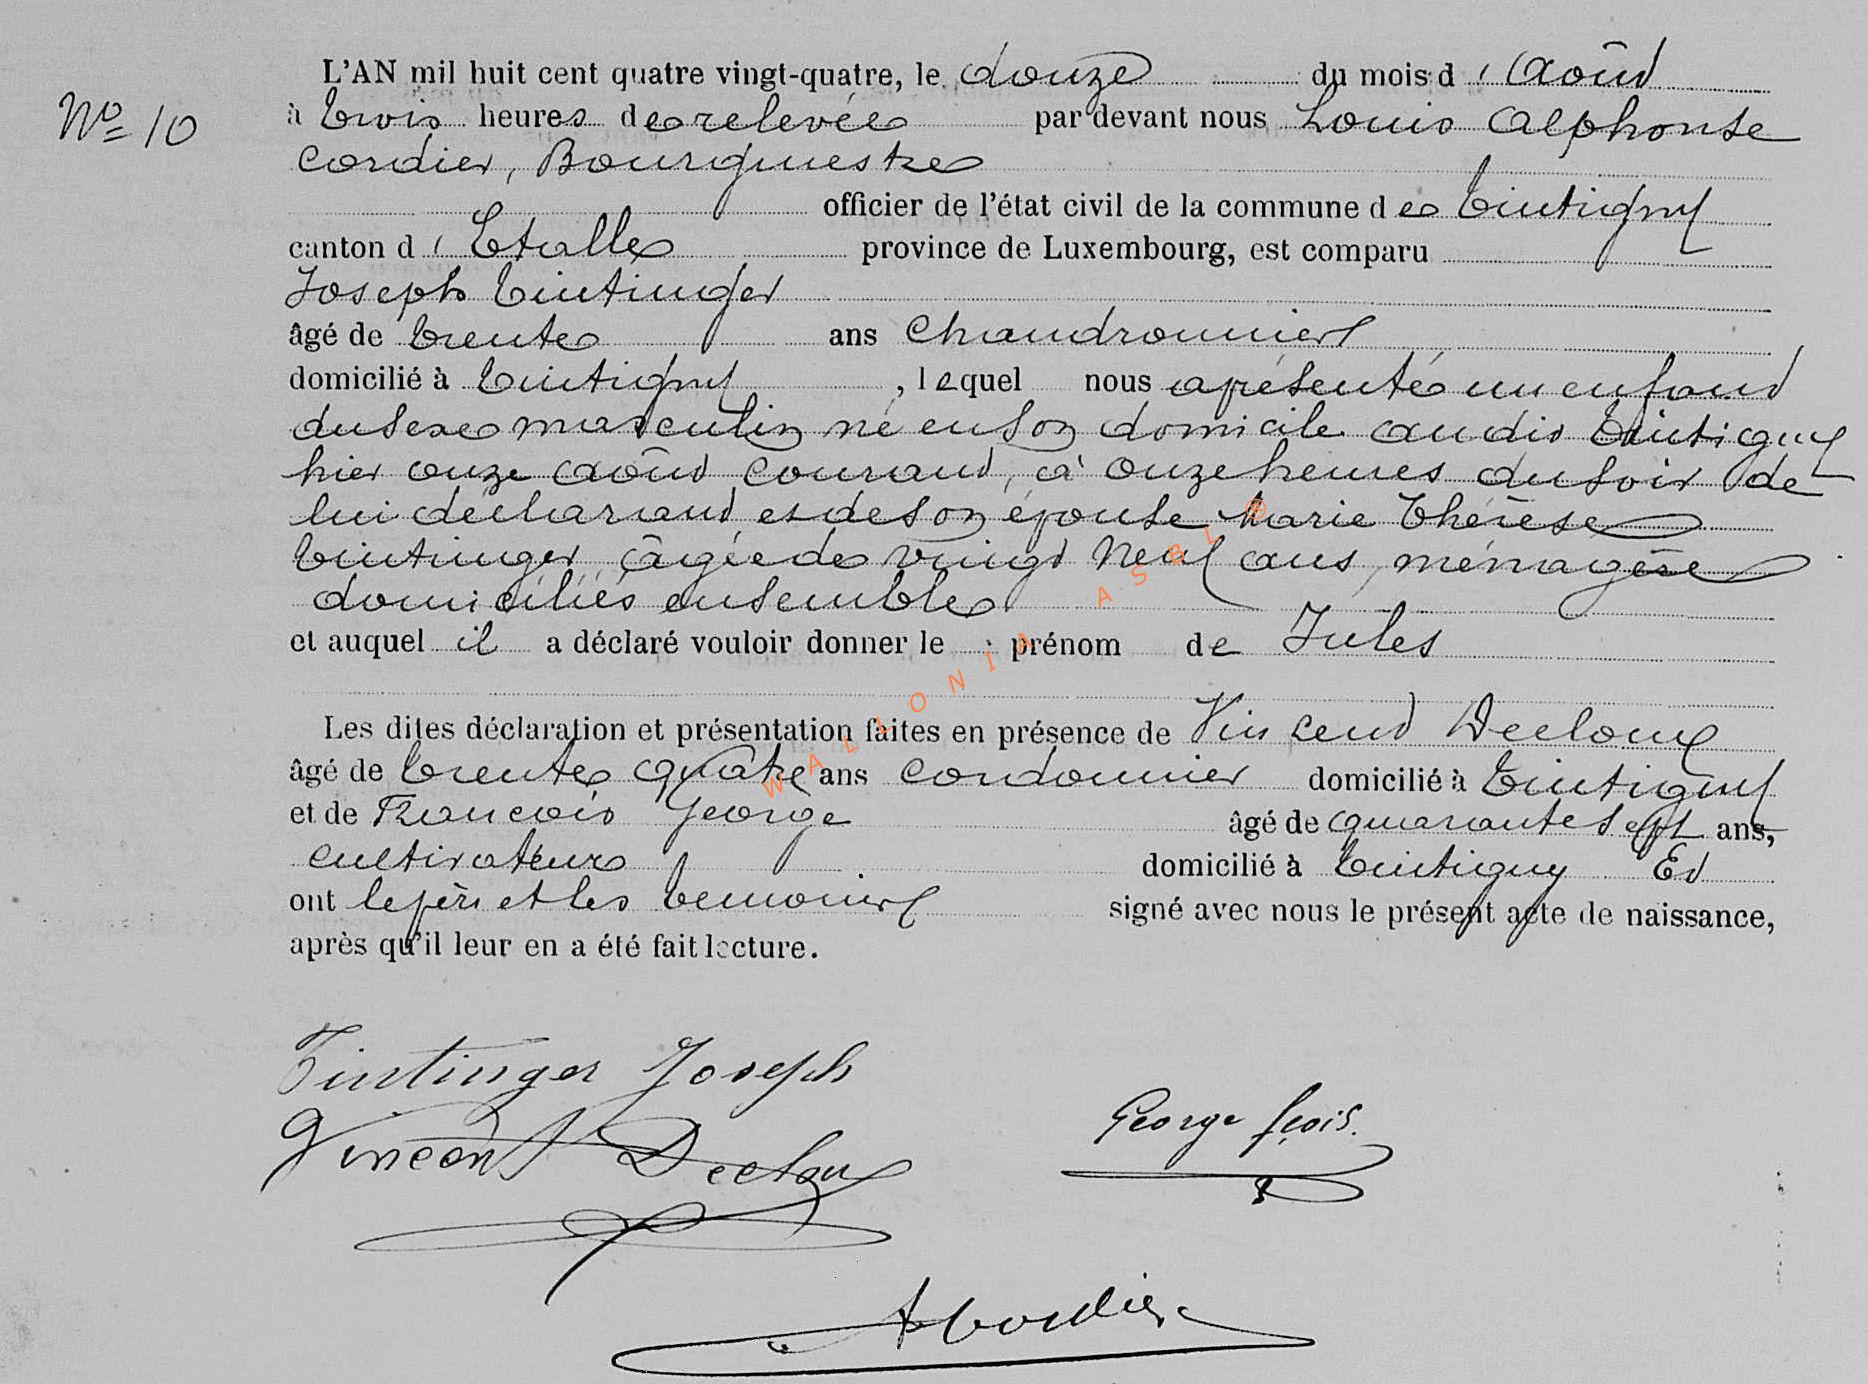 L'AN mil huit cent quatre vingt-quatre, le douze du mois d'Aoûd
N° 10
à trois heures de relevée par devant nous Louis Alphonse
Cordier, Bourgmestre
officier de l'état civil de la commune de Tintigny
canton d'Etalle province de Luxembourg, est comparu
Joseph Tintinger
âgé de trente ans Chaudronnier
domicilié à Tintigny, lequel nous a présenté un enfand
du sexe masculin né en son domicile audit Tintigny
hier onze aoûd courand, à onze heures du soir de
lui déclarand et de son épouse Marie Thérèse
Tintinger, âgée de vingd neuf ans, ménagère
domiciliés ensemble
et auquel il a déclaré vouloir donner le prénom de Jules
Les dites déclaration et présentation faites en présence de Vincend Decloux
âgé de trente quatre ans cordonnier domicilié à Tintigny
et de François George âgé de quarante sept ans,
cultivateur domicilié à Tintigny Ed
ont le père et les temoins signé avec nous le présent acte de naissance,
après qu'il leur en a été fait lecture.
Tintinger Joseph
George fçois.
Vincent Decloux
ACordier
WALLONIA ASBL ®